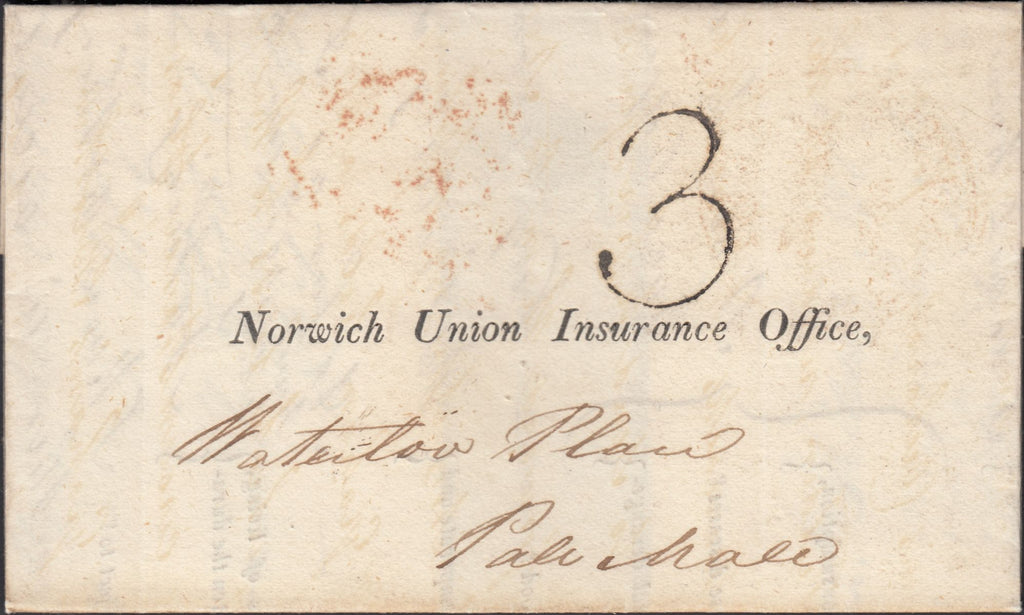 3
Norwich Union Insurance Office,
Waterloo Place
Pall Mall